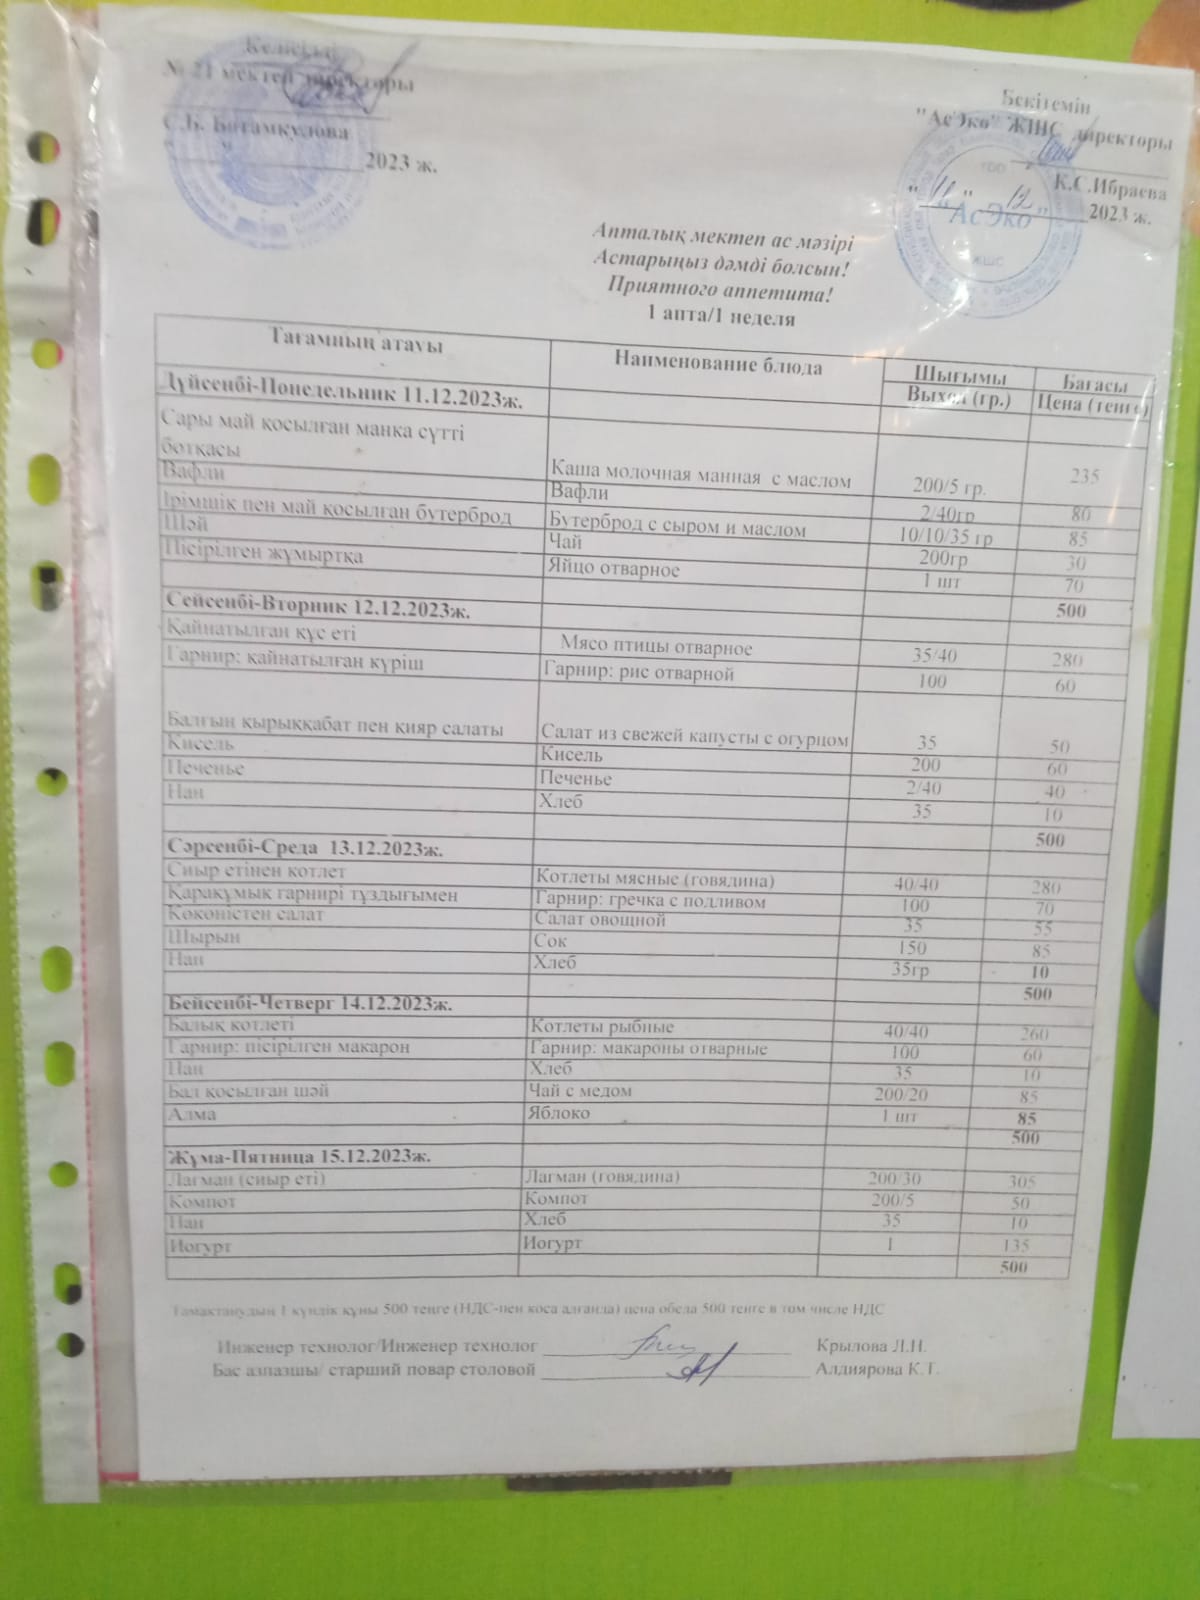 Келісілді
№ 21 мектеп директоры
С.Б. Ботамкулова
"____"____________2023 ж.
Бекітемін
"АсЭко" ЖШС директоры
К.С.Ибраева
"11" 12 2023 ж.
"АсЭко"
ТОО
ЖШС
Апталық мектеп ас мәзірі
Астарыңыз дәмді болсын!
Приятного аппетита!
1 апта/1 неделя
Тағамның атауы Наименование блюда Шығымы Бағасы
Выход (гр.) Цена (тенге)
Дүйсенбі-Понедельник 11.12.2023ж.
Сары май қосылған манка сүтті
ботқасы Каша молочная манная с маслом 200/5 гр. 235
Вафли Вафли 2/40гр 80
Ірімшік пен май қосылған бутерброд Бутерброд с сыром и маслом 10/10/35 гр 85
Шәй Чай 200гр 30
Пісірілген жұмыртқа Яйцо отварное 1 шт 70
500
Сейсенбі-Вторник 12.12.2023ж.
Қайнатылған құс еті Мясо птицы отварное 35/40 280
Гарнир: қайнатылған күріш Гарнир: рис отварной 100 60
Балғын қырыққабат пен қияр салаты Салат из свежей капусты с огурцом 35 50
Кисель Кисель 200 60
Печенье Печенье 2/40 40
Нан Хлеб 35 10
500
Сәрсенбі-Среда 13.12.2023ж.
Сиыр етінен котлет Котлеты мясные (говядина) 40/40 280
Қарақұмық гарнирі тұздығымен Гарнир: гречка с подливом 100 70
Көкөністен салат Салат овощной 35 55
Шырын Сок 150 85
Нан Хлеб 35гр 10
500
Бейсенбі-Четверг 14.12.2023ж.
Балық котлеті Котлеты рыбные 40/40 260
Гарнир: пісірілген макарон Гарнир: макароны отварные 100 60
Нан Хлеб 35 10
Бал қосылған шәй Чай с медом 200/20 85
Алма Яблоко 1 шт 85
500
Жұма-Пятница 15.12.2023ж.
Лагман (сиыр еті) Лагман (говядина) 200/30 305
Компот Компот 200/5 50
Нан Хлеб 35 10
Йогурт Йогурт 1 135
500
Тамақтанудың 1 күндік құны 500 теңге (НДС-пен қоса алғанда) цена обеда 500 тенге в том числе НДС
Инженер технолог/Инженер технолог ____________ Крылова Л.Н.
Бас аспазшы/ старший повар столовой ____________ Алдиярова К.Т.